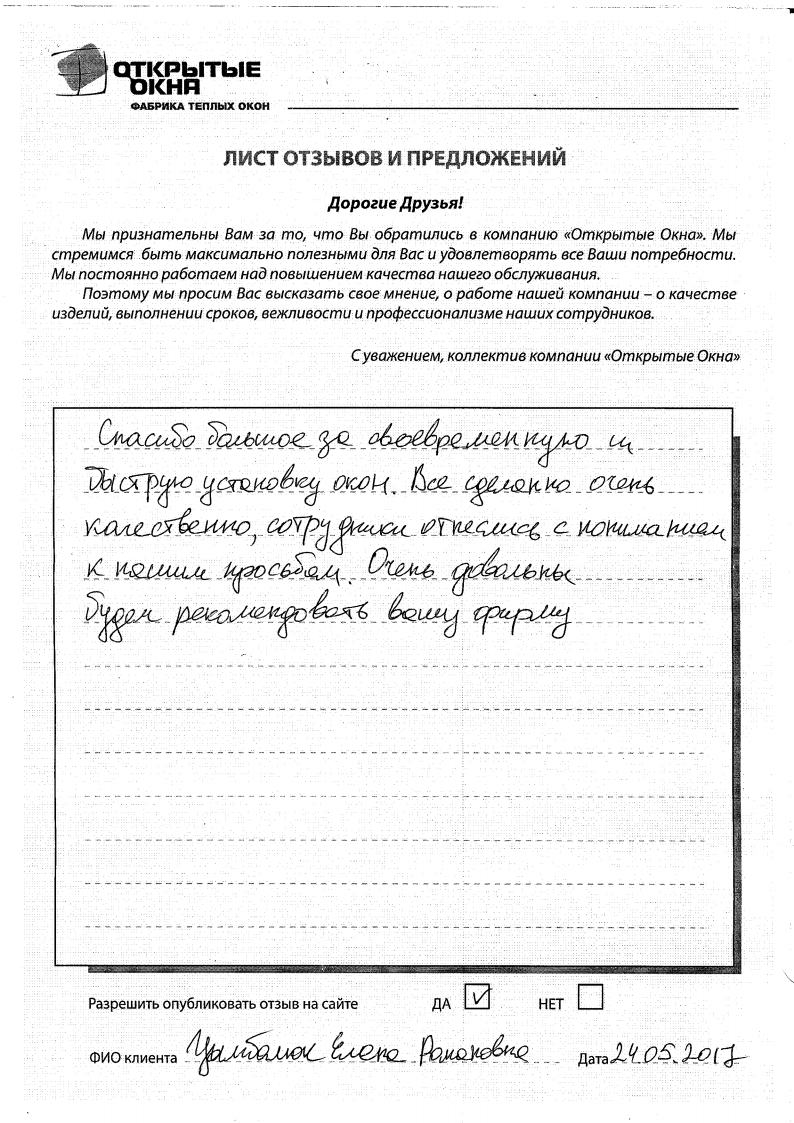 ОТКРЫТЫЕ
ОКНА
ФАБРИКА ТЕПЛЫХ ОКОН
ЛИСТ ОТЗЫВОВ И ПРЕДЛОЖЕНИЙ
Дорогие Друзья!
Мы признательны Вам за то, что Вы обратились в компанию «Открытые Окна». Мы
стремимся быть максимально полезными для Вас и удовлетворять все Ваши потребности.
Мы постоянно работаем над повышением качества нашего обслуживания.
Поэтому мы просим Вас высказать свое мнение, о работе нашей компании – о качестве
изделий, выполнении сроков, вежливости и профессионализме наших сотрудников.
С уважением, коллектив компании «Открытые Окна»
Спасибо большое за своевременную и
быструю установку окон. Все сделанно очень
качественно, сотрудники отнеслись с пониманием
к нашим просьбам. Очень довольны
будем рекомендовать вашу фирму
Разрешить опубликовать отзыв на сайте ДА НЕТ
ФИО клиента Цымбалюк Елена Дата 24.05.2017